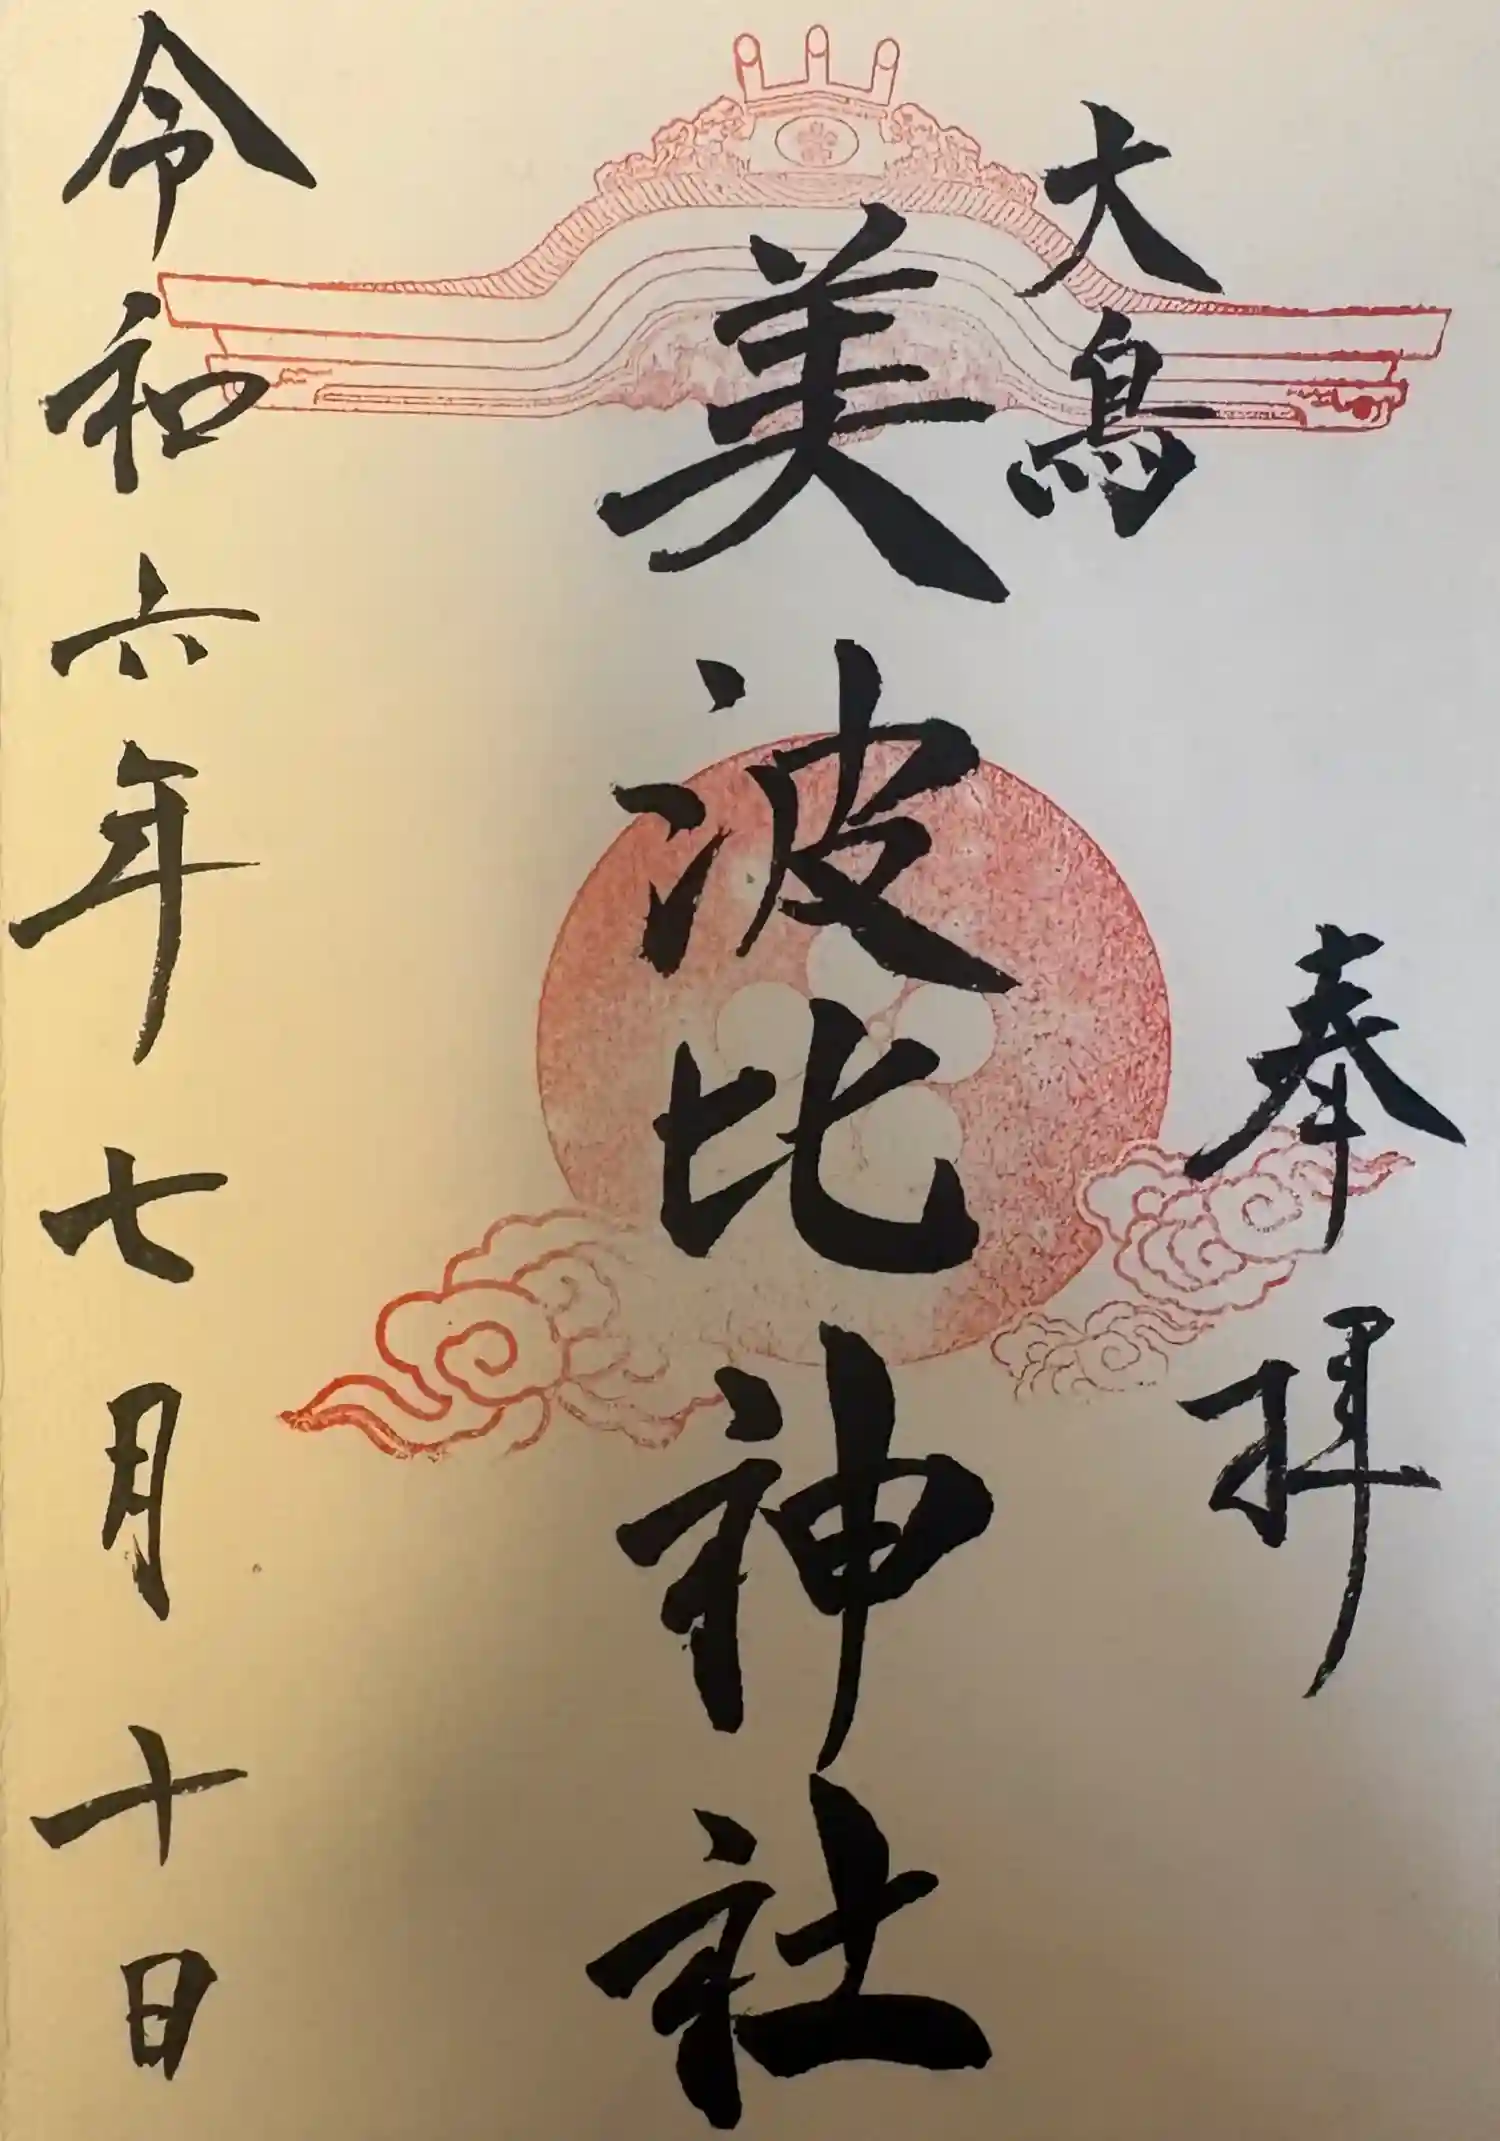 奉拝
大鳥
美波比神社
令和六年七月十日